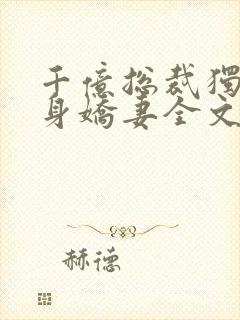 千億總裁獨
身嬌妻全文
赫德